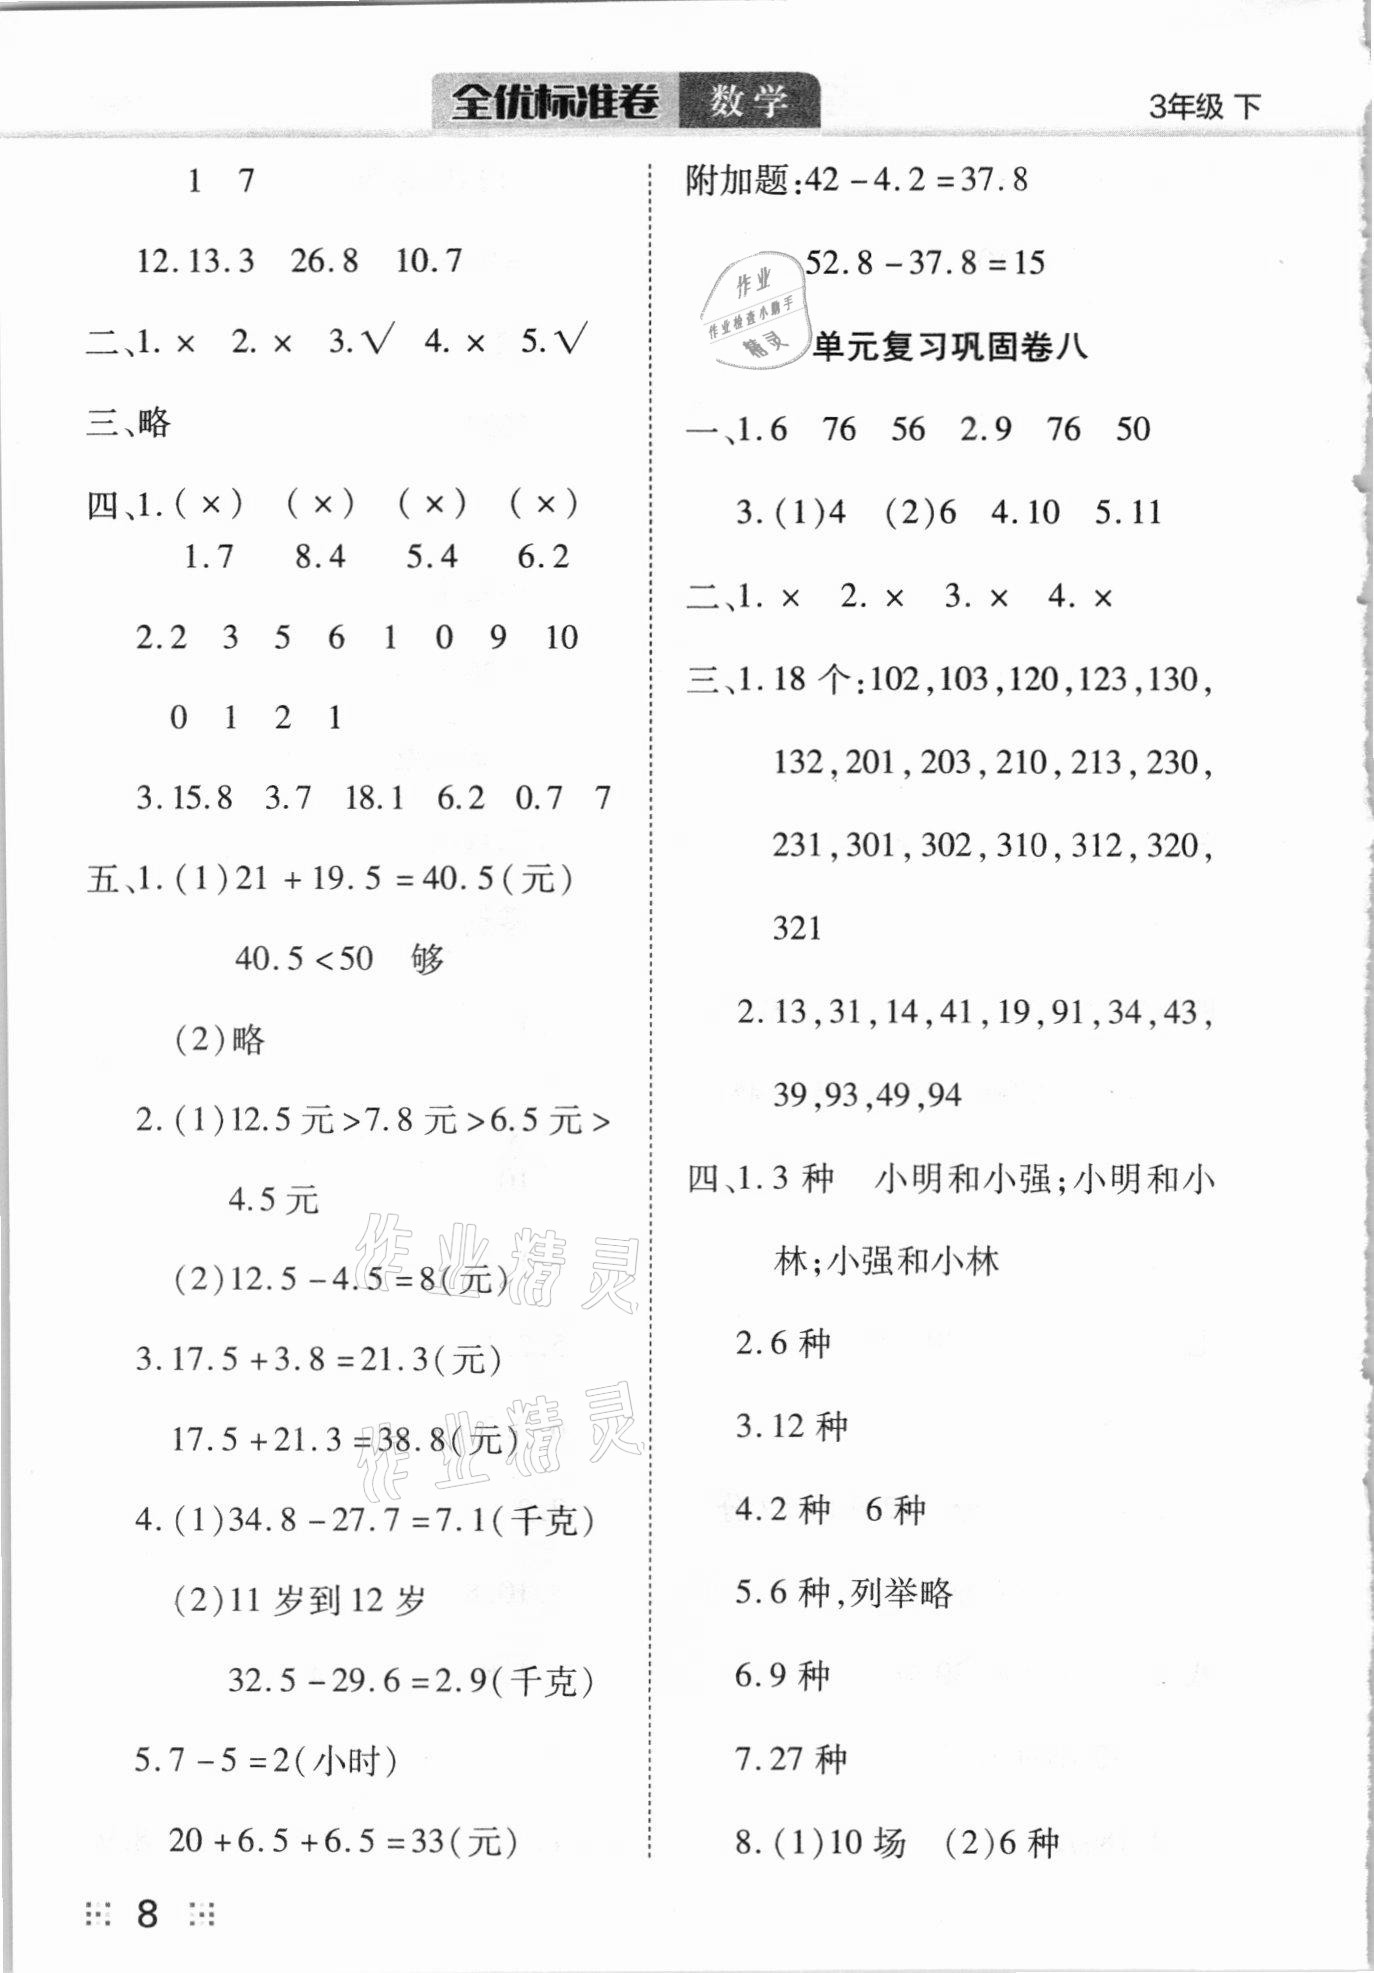 全优标准卷 数学
3年级 下
1 7
12.13.3 26.8 10.7
二、1. × 2. × 3.√ 4. × 5.√
三、略
四、1.(×) (×) (×) (×)
1.7 8.4 5.4 6.2
2.2 3 5 6 1 0 9 10
0 1 2 1
3.15.8 3.7 18.1 6.2 0.7 7
五、1.(1)21+19.5=40.5(元)
40.5<50 够
(2)略
2.(1)12.5元>7.8元>6.5元>
4.5元
(2)12.5-4.5=8(元)
3.17.5+3.8=21.3(元)
17.5+21.3=38.8(元)
4.(1)34.8-27.7=7.1(千克)
(2)11岁到12岁
32.5-29.6=2.9(千克)
5.7-5=2(小时)
20+6.5+6.5=33(元)
附加题:42-4.2=37.8
52.8-37.8=15
单元复习巩固卷八
一、1.6 76 56 2.9 76 50
3.(1)4 (2)6 4.10 5.11
二、1. × 2. × 3. × 4. ×
三、1.18个:102,103,120,123,130,
132,201,203,210,213,230,
231,301,302,310,312,320,
321
2.13,31,14,41,19,91,34,43,
39,93,49,94
四、1.3种 小明和小强;小明和小
林;小强和小林
2.6种
3.12种
4.2种 6种
5.6种,列举略
6.9种
7.27种
8.(1)10场 (2)6种
8
作业
作业检查小助手
精灵
作业精灵
作业精灵